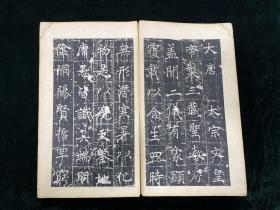 大唐 太宗文皇
帝製三藏聖教序
蓋聞二儀有象顯
覆載以含生四時
無形潛寒暑以化
物是以窺天鑒地
庸愚皆識其端明
陰洞陽賢哲罕窮